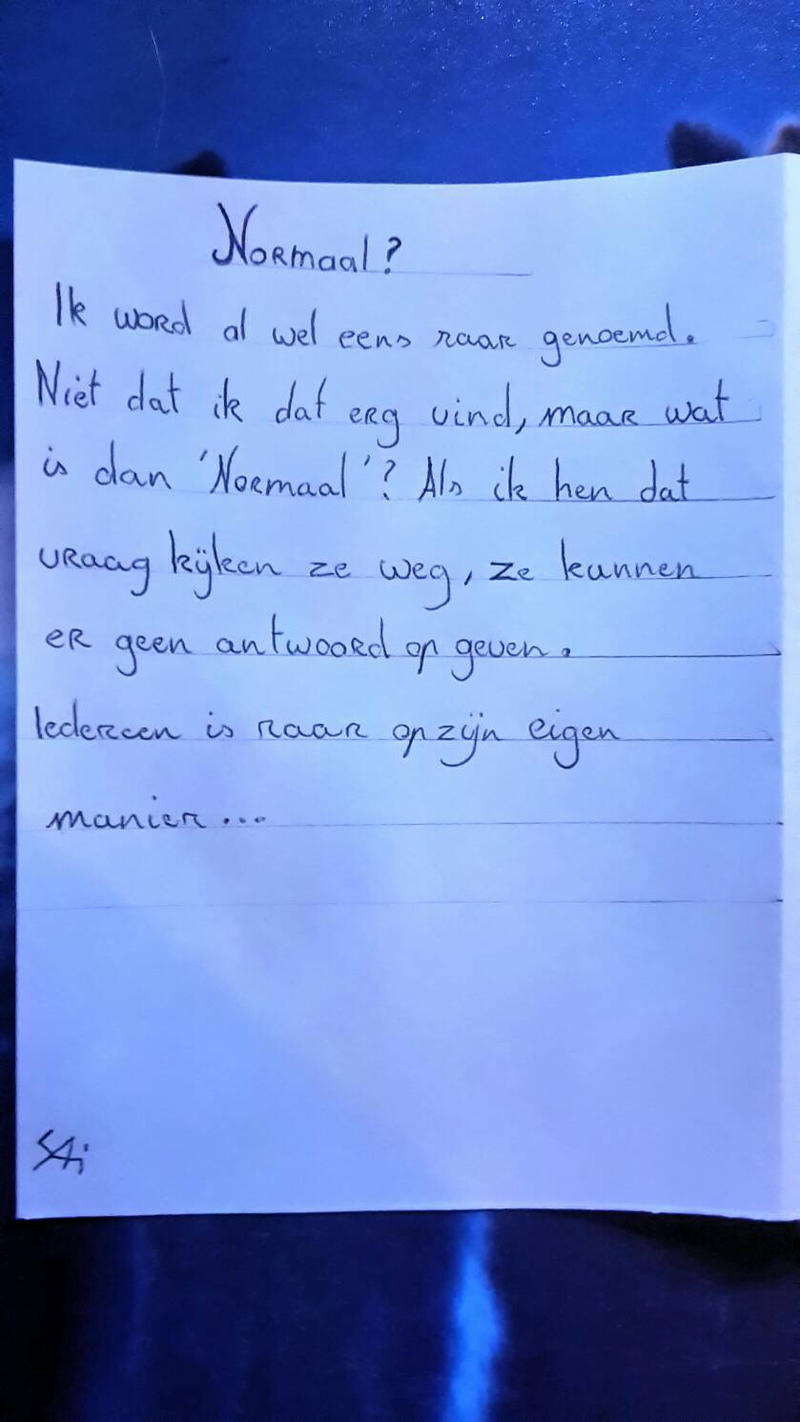 Normaal?
Ik word al wel eens raar genoemd.
Niet dat ik dat erg vind, maar wat
is dan 'Normaal'? Als ik hen dat
vraag kijken ze weg, ze kunnen
er geen antwoord op geven.
Iedereen is raar op zijn eigen
manier...
SAi